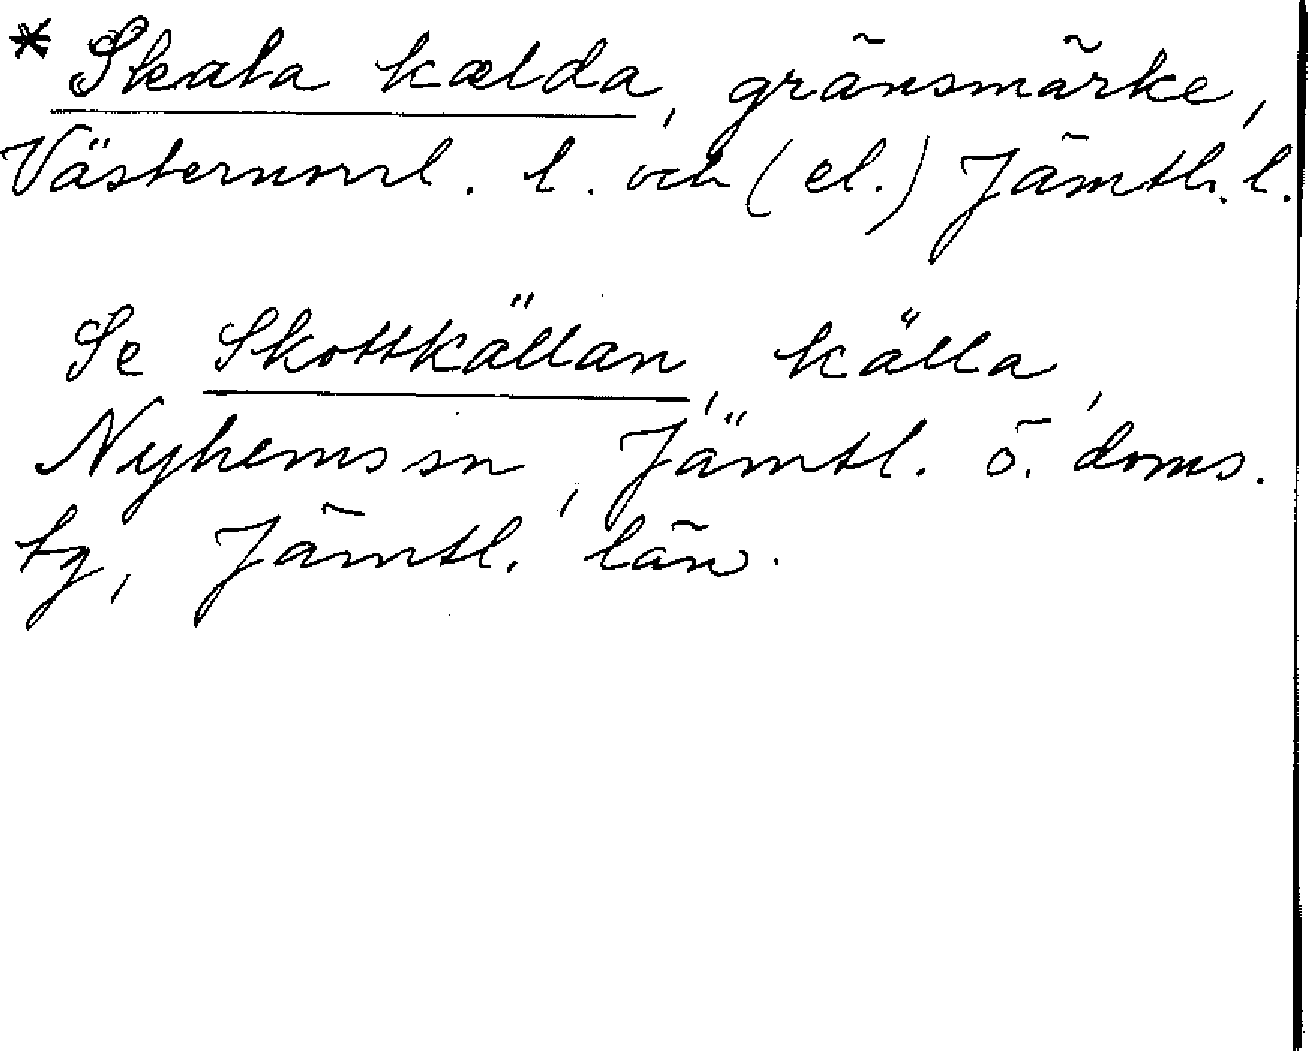 * Skata kælda, gränsmärke,
Västernorrl. l. och (el.) Jämtl. l.
Se Skottkällan, källa,
Nyhems sn, Jämtl. ö. doms.
tg, Jämtl. län.